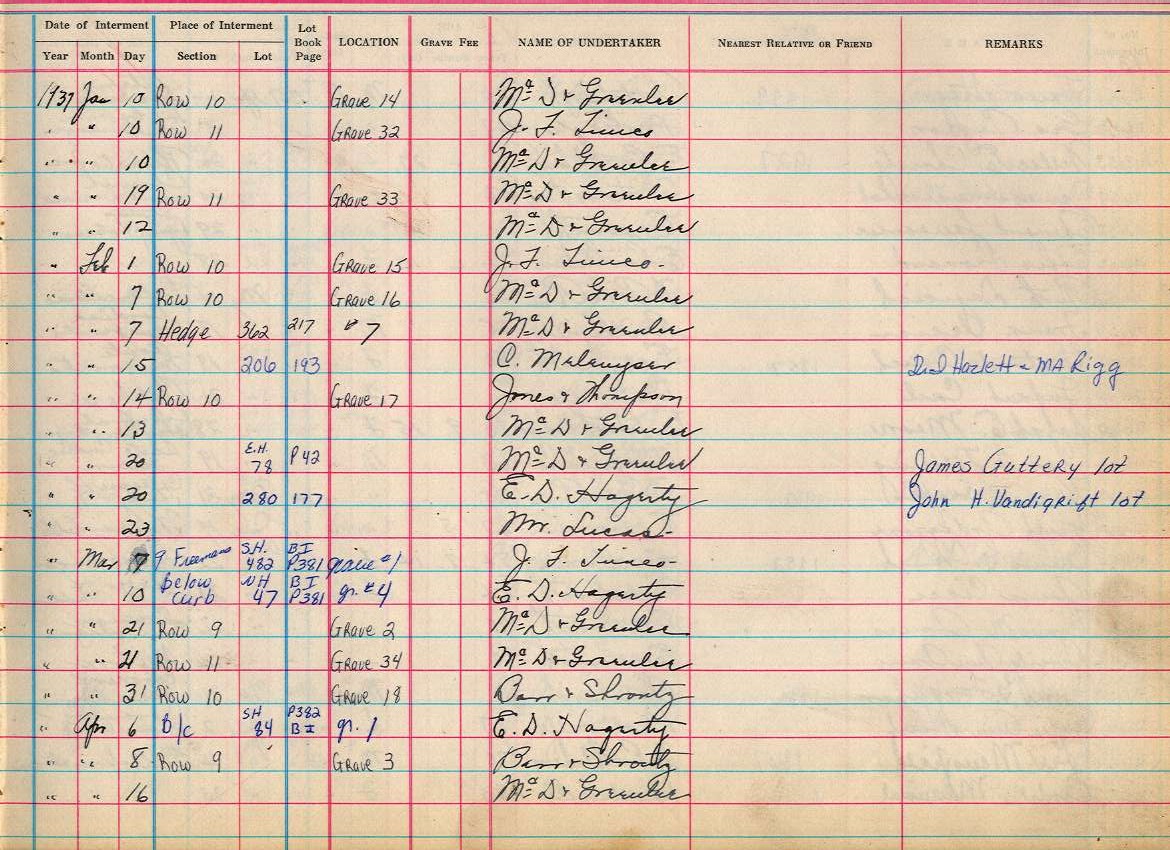 Date of Interment Place of Interment Lot Book Page LOCATION GRAVE FEE NAME OF UNDERTAKER NEAREST RELATIVE OR FRIEND REMARKS
Year Month Day Section Lot
1937 Jan 10 Row 10 Grave 14 Mc D & Greenlee
" " 10 Row 11 Grave 32 J. F. Timco
" " 10 Mc D & Greenlee
" " 19 Row 11 Grave 33 Mc D & Greenlee
" " 12 Mc D & Greenlee
" Feb 1 Row 10 Grave 15 J. F. Timco
" " 7 Row 10 Grave 16 Mc D & Greenlee
" " 7 Hedge 362 217 # 7 Mc D & Greenlee
" " 15 206 193 C. Hazlett & MA Rigg
" " 14 Row 10 Grave 17 Jones & Thompson
" " 13 Mc D & Greenlee
" " 20 E.H. 78 P42 Mc D & Greenlee James Guttery lot
" " 20 280 177 E. D. Hagerty John H. Vandigrift lot
" " 23 Mr. Lucas
" Mar 7 9 Freemans S.H. 482 BI P381 grave #1 J. F. Timco
" " 10 Below curb NH 47 BI P381 gr. #4 E. D. Hagerty
" " 21 Row 9 Grave 2 Mc D & Greenlee
" " 21 Row 11 Grave 34 Mc D & Greenlee
" " 31 Row 10 Grave 18 Barr & Shrontz
" Apr 6 B/c SH 84 P382 BI gr. 1 E. D. Hagerty
" " 8 Row 9 Grave 3 Barr & Shrontz
" " 16 Mc D & Greenlee